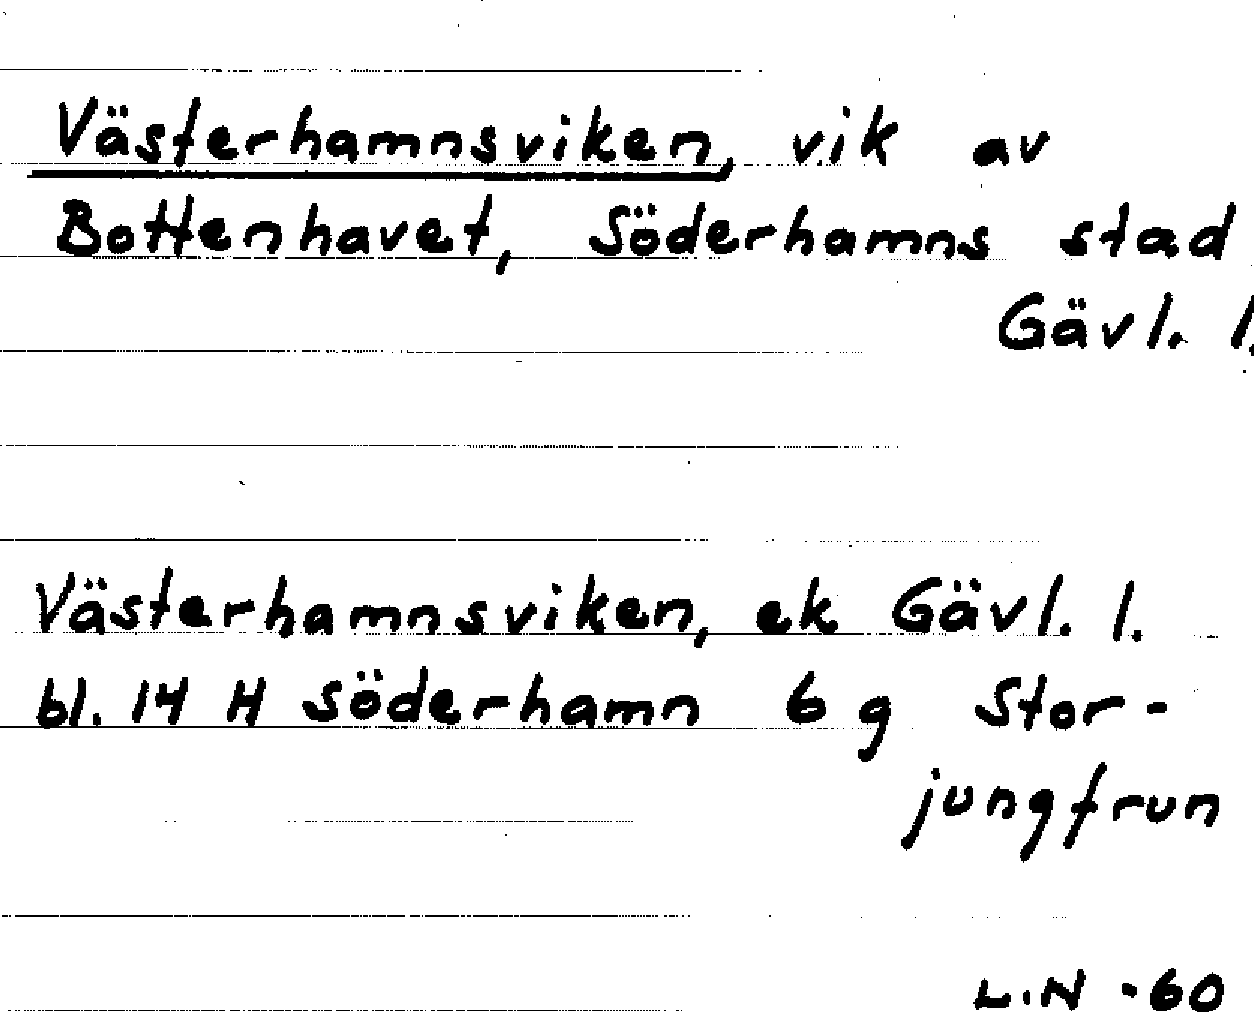 Västerhamnsviken, vik av
Bottenhavet, Söderhamns stad
Gävl. l.
Västerhamnsviken, ek Gävl. l.
bl. 14 H Söderhamn 6 g Stor-
jungfrun
L.N -60